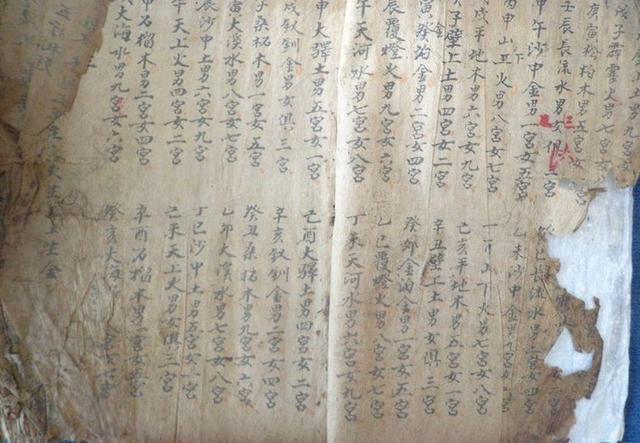 子霹靂火男七宮女
庚寅松柏木男五宮女
壬辰長流水男女俱三宮
甲午沙中金男一宮女五宮
丙申山下火男八宮女七宮
戊戌平地木男六宮女九宮
子壁上土男四宮女二宮
寅金泊金男二宮女四宮
辰覆燈火男九宮女六宮
午天河水男七宮女八宮
申大驛土男五宮女一宮
戌釵釧金男女俱三宮
子桑柘木男一宮女五宮
大溪水男八宮女七宮
辰沙中土男六宮女九宮
午天上火男四宮女二宮
申石榴木男二宮女四宮
大海水男九宮女六宮
巳長流水男二宮女四宮
乙未沙中金男九宮女
山下火男七宮女八宮
己亥平地木男五宮女一宮
辛丑壁上土男女俱三宮
癸卯金泊金男一宮女五宮
乙巳覆燈火男八宮女七宮
丁未天河水男六宮女九宮
己酉大驛土男四宮女二宮
辛亥釵釧金男二宮女四宮
癸丑桑柘木男九宮女六宮
乙卯大溪水男七宮女八宮
丁巳沙中土男五宮女一宮
己未天上火男女俱三宮
辛酉石榴木男一宮女五宮
癸亥大海水